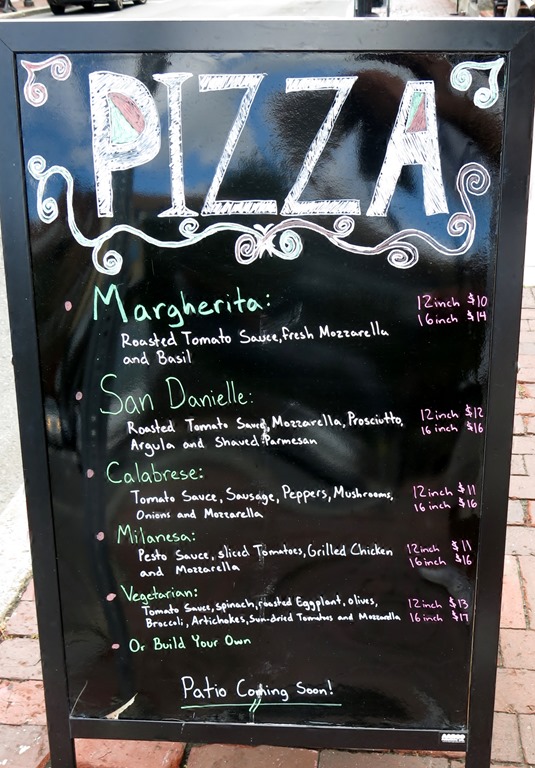 PIZZA
Margherita: 12inch $10
16inch $14
Roasted Tomato Sauce, fresh Mozzarella
and Basil
San Danielle:
Roasted Tomato Sauce, Mozzarella, Prosciutto, 12inch $12
Argula and Shaved Parmesan 16 inch $16
Calabrese:
Tomato Sauce, Sausage, Peppers, Mushrooms, 12inch $11
Onions and Mozzarella 16 inch $16
Milanesa:
Pesto Sauce, sliced Tomatoes, Grilled Chicken 12inch $11
and Mozzarella 16inch $16
Vegetarian:
Tomato Sauce, spinach, roasted Eggplant, olives, 12inch $13
Broccoli, Artichokes, Sun-dried Tomatoes and Mozzarella 16inch $17
Or Build Your Own
Patio Coming Soon!